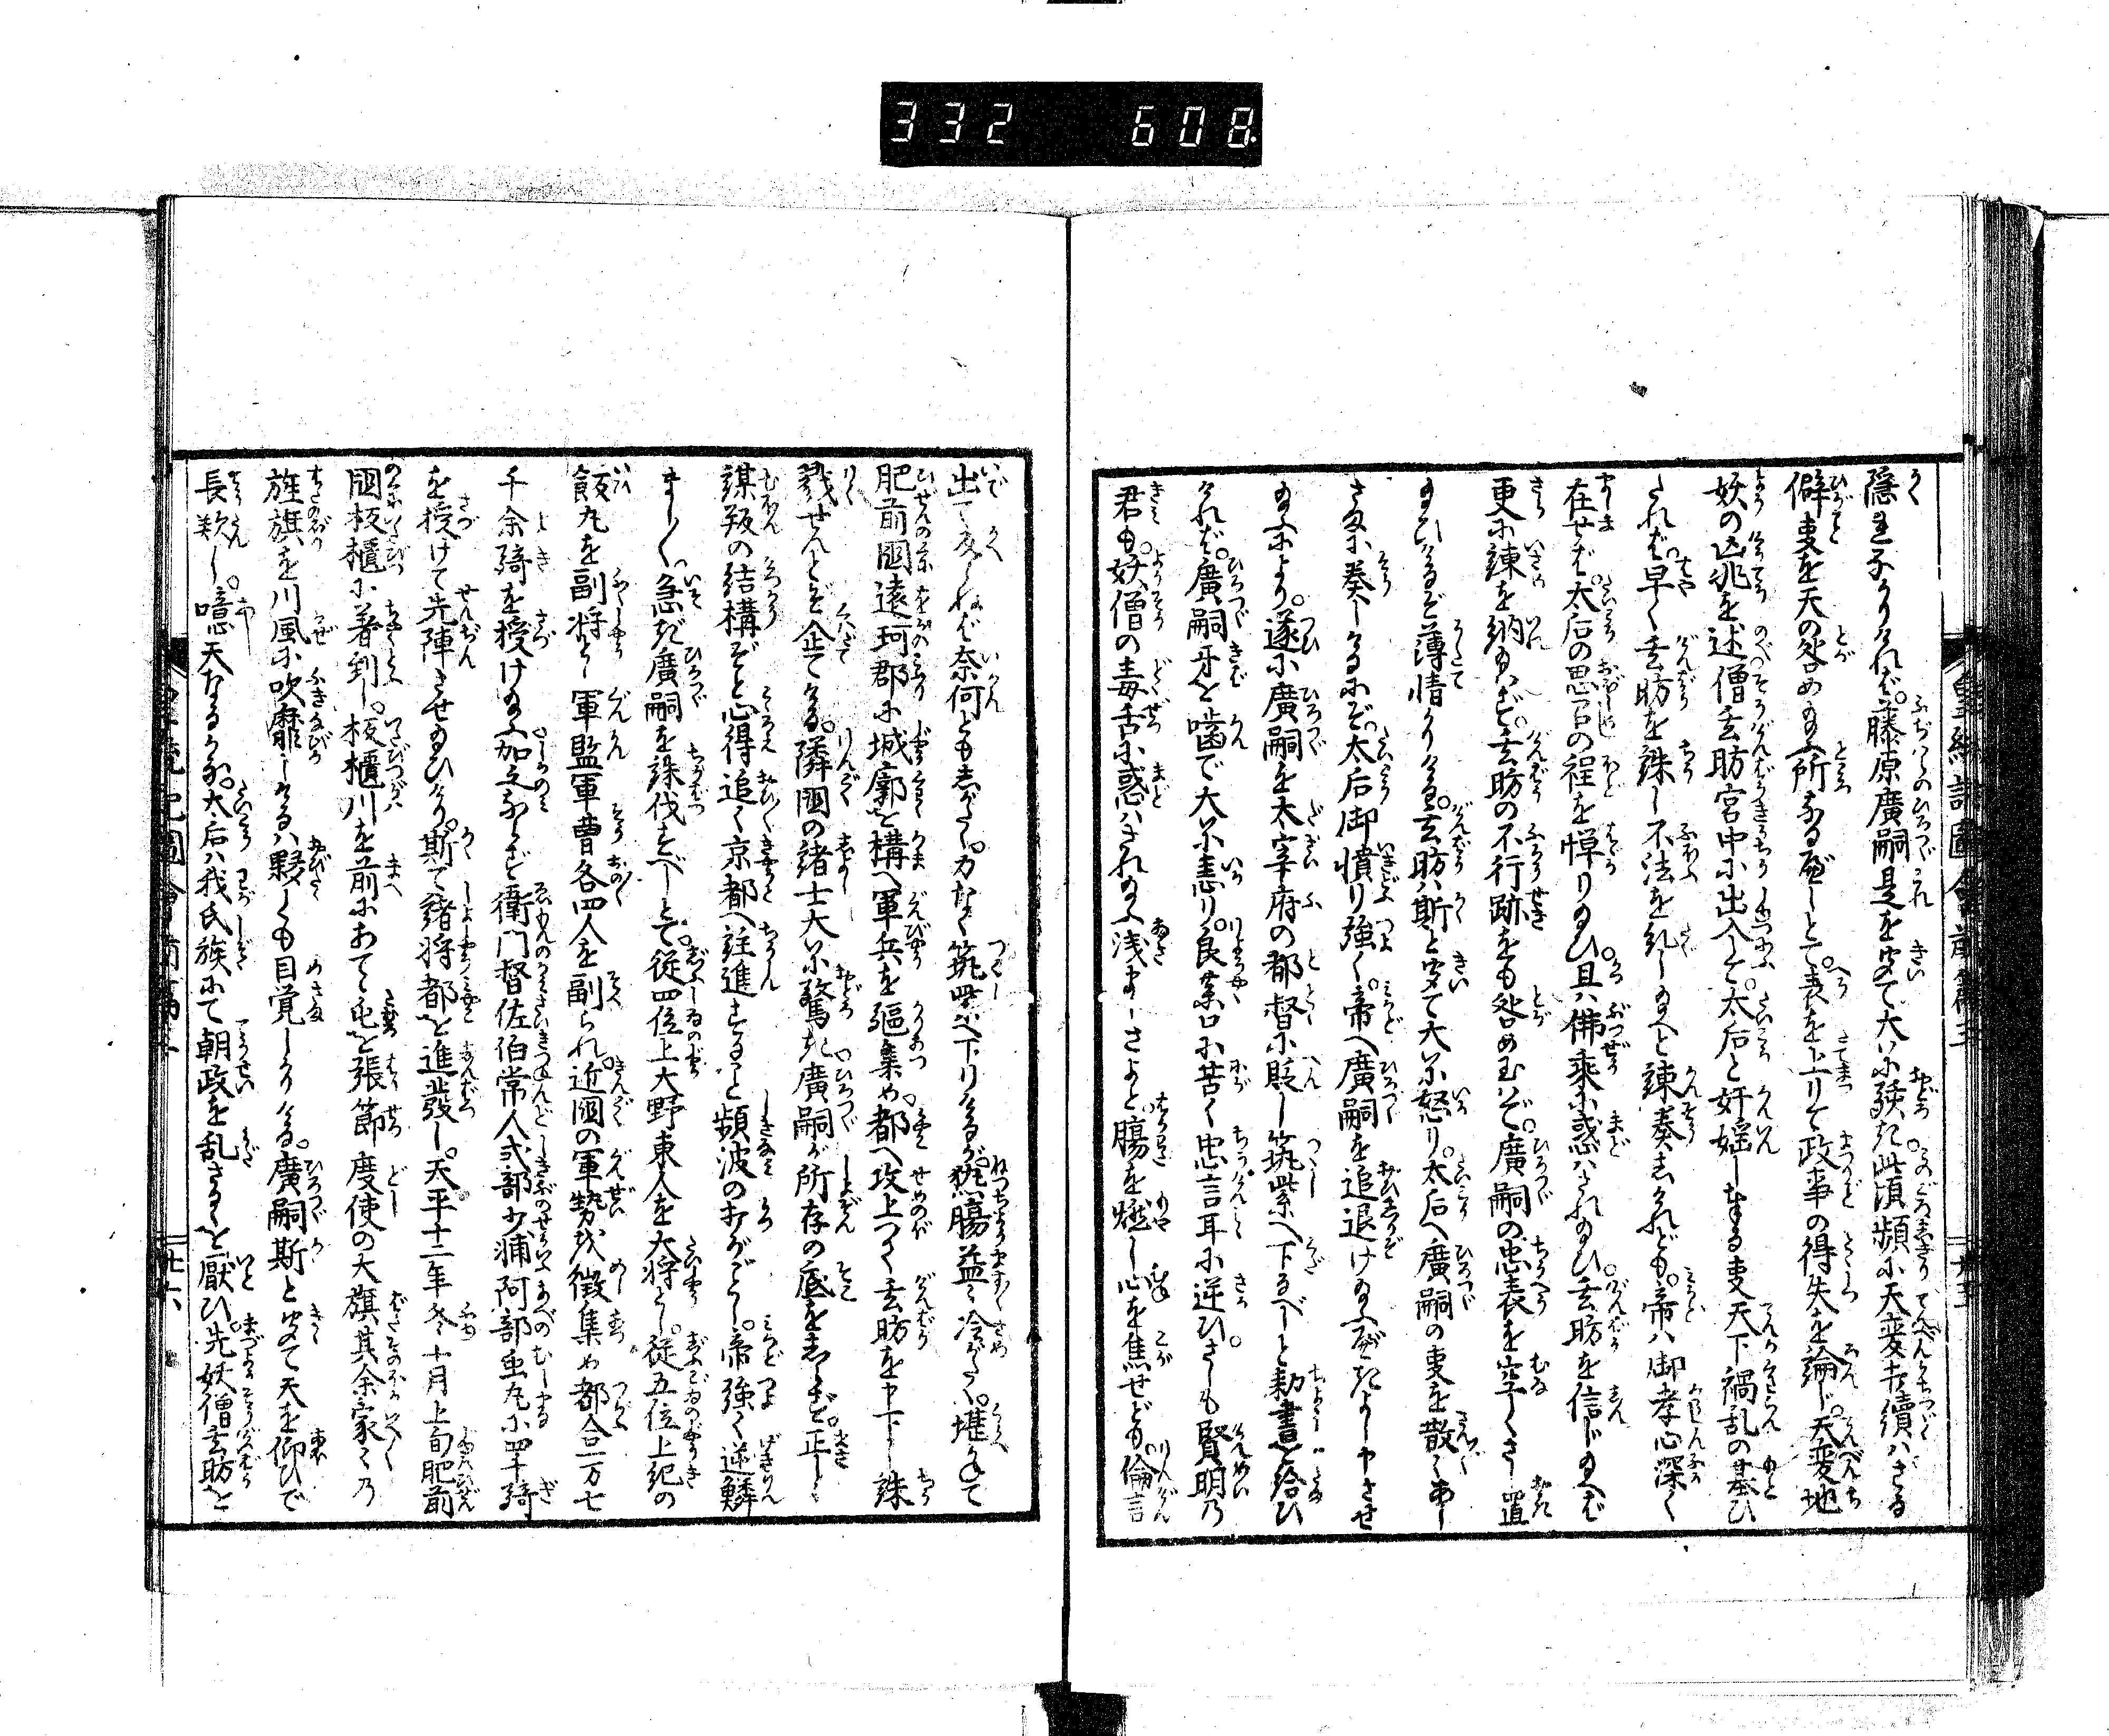 332 608
隠まりければ。藤原廣嗣是を聞て大に駭き此頃頻に天変打續はさる
僻事を天の咎め給ふ所なるべしとて。表を上りて政事の得失を論じ。天変地
妖の凶兆を述僧玄昉宮中に出入して。太后と奸婬しまゐる事天下禍乱の基ひ
されば早く玄昉を誅し不法を糺し給へと諫奏しけれども。帝は御孝心深く
在せば太后の思召の程を憚り給ひ。且は佛乘に惑はされ給ひ。玄昉を信じ給へば
更に諫を納給はず。玄昉の不行跡をも咎め玉はず。廣嗣の忠表を空くさし置
給ひけるぞ薄情かりける。玄昉は斯と聞て大に怒り。太后へ廣嗣の事を散々あし
さまに奏しけるにぞ。太后御憤り強く。帝へ廣嗣を追退け給ふべきよし申させ
給ふにより。遂に廣嗣を太宰府の都督に貶し筑紫へ下るべしと勅書を給ひ
ければ。廣嗣牙を噛で大に恚り。良薬口に苦く忠言耳に逆ひ。さしも賢明乃
君も。妖僧の毒舌に惑はされ給ふ浅ましさよと。腸を燃し心を焦せども。倫言
出て反らねば奈何ともしがたく。力なく筑紫へ下りけるが。熱腸益々冷がたく。堪かねて
肥前國遠珂郡に城廓を構へ軍兵を駈集め。都へ攻上つて玄昉を申下し誅
戮せんとぞ企てける。隣國の諸士大に驚き。廣嗣が所存の底をしらず。正しく
謀叛の結構ぞと心得追々京都へ註進する事頻波の打がごとし。帝強く逆鱗
まし〱。急ぎ廣嗣を誅伐すべしとて。従四位上大野東人を大将とし。従五位上紀の
飯丸を副将とし軍監軍曹各四人を副られ。近國の軍勢を徴集め都合一万七
千余騎を授け給ふ。加之ならず衛門督佐伯常人式部少輔阿部虫丸に四千騎
を授けて先陣させ給ひけり。斯て諸将都を進發し。天平十二年冬十月上旬肥前
國板櫃に着到し。板櫃川を前にあてゝ屯を張節度使の大旗其余家々乃
旌旗を川風に吹靡しけるは夥しくも目覚しかりける。廣嗣斯と聞て天を仰ひで
長歎し。噫天なるかな。太后は我氏族にて朝政を乱さるゝを厭ひ。先妖僧玄昉を